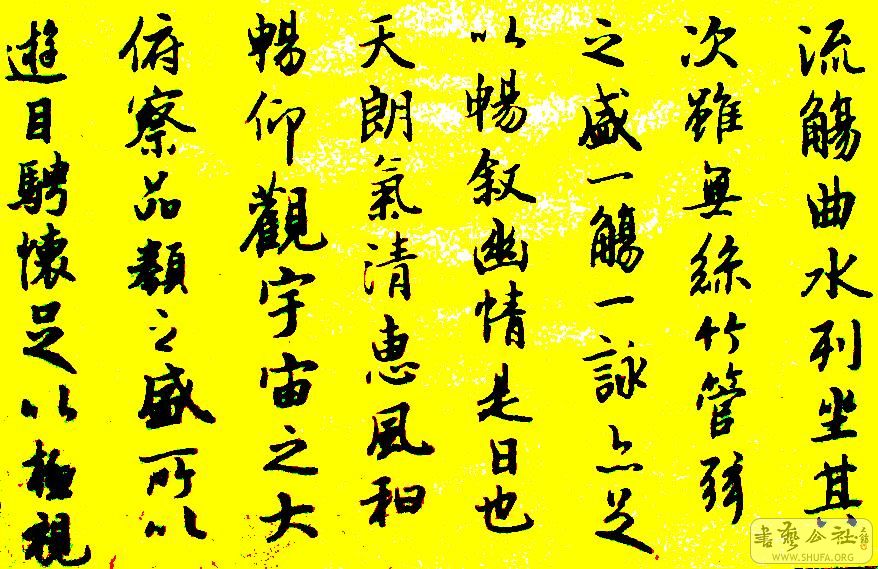 流觴曲水列坐其
次雖無絲竹管弦
之盛一觴一詠亦足
以暢叙幽情是日也
天朗氣清惠風和
暢仰觀宇宙之大
俯察品類之盛所以
遊目騁懷足以極視
書藝公社
WWW.SHUFA.ORG